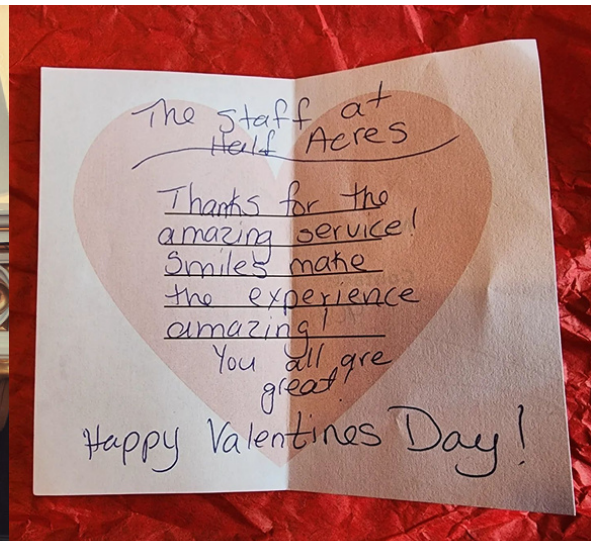 The staff at
Half Acres
Thanks for the
amazing service!
Smiles make
the experience
amazing!
You all are
great!
Happy Valentines Day!